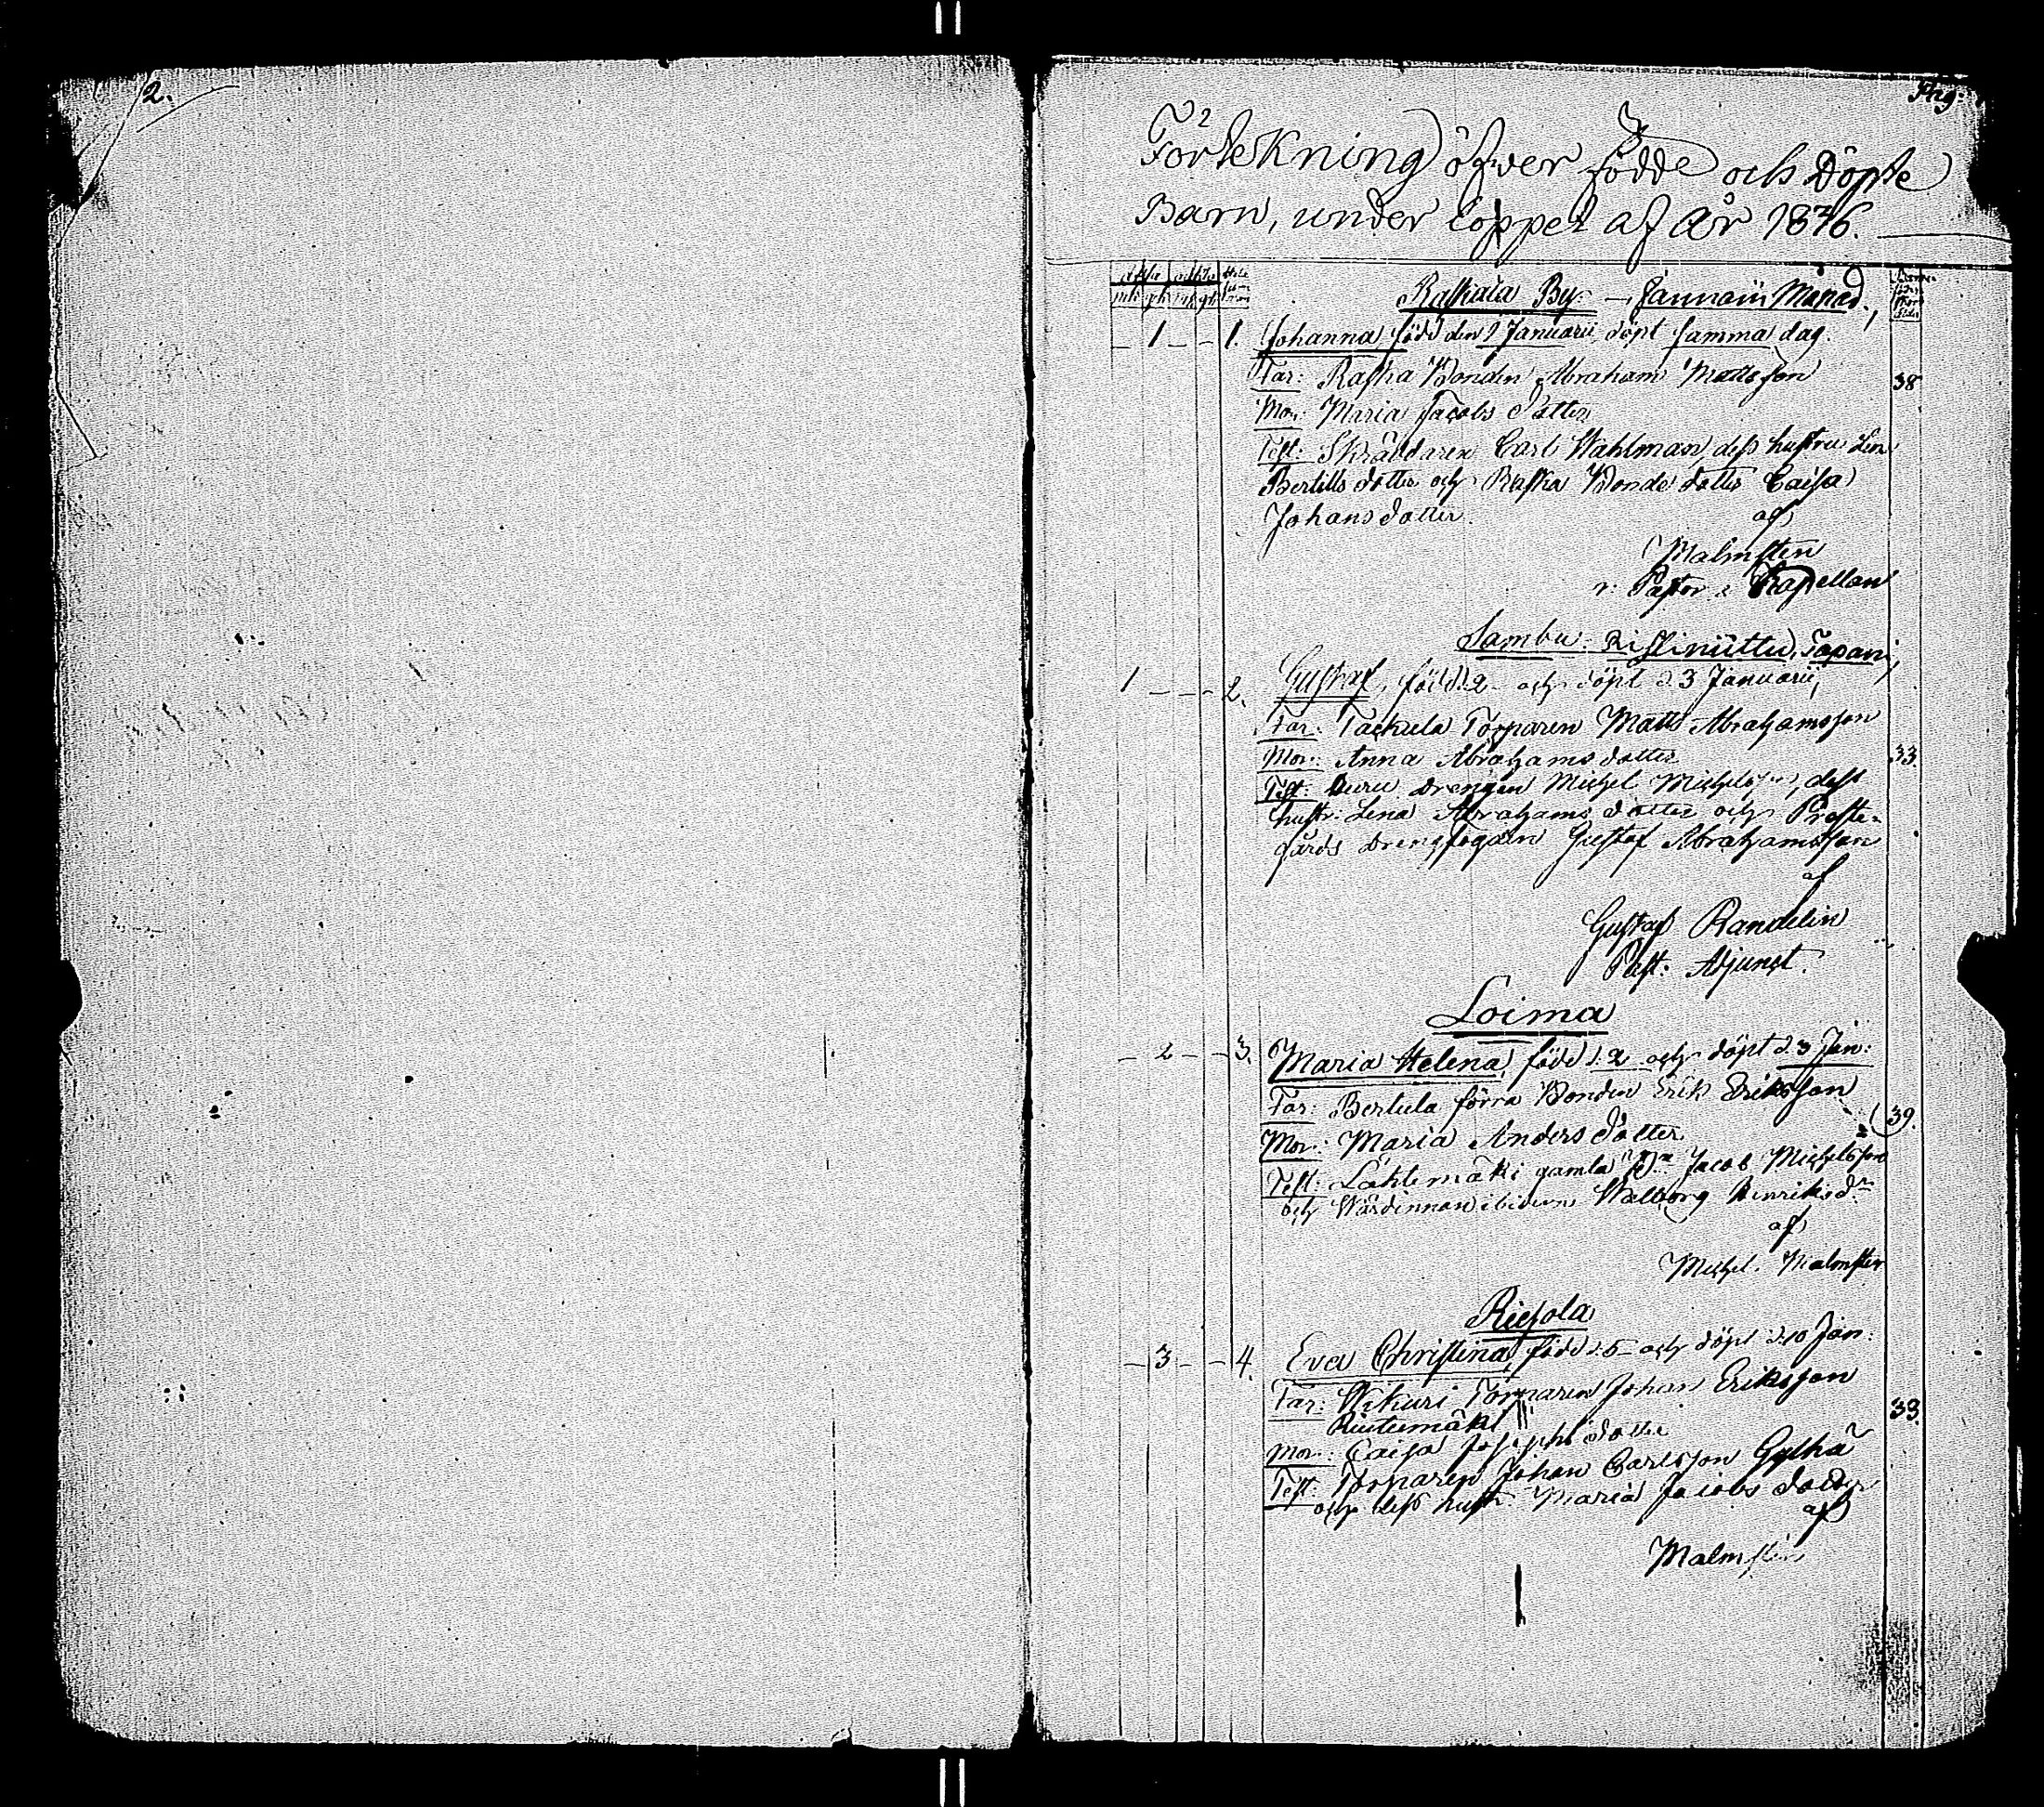 2.
Pag:
Förtekning öfver födde och Döpte
Barn, under loppet af År 1836.
Raskala By. — Januarii Månad.
1 1. Johanna född den 1 Januarii, döpt samma dag.
Far: Raska Bonden Abraham Mattsson 38
Mor: Maria Jacobs Dotter
Test: Skräddaren Carl Wahlman, dess hustru Lena
Bertills dotter och Raska Bonde dotter Caisa
Johans dotter.
af
Malmsten
v: Pastor & Kapellan
Sambu: Ristinüttu, Tapani,
1 2. Gustaf, född d. 2 och döpt d. 3 Januarii,
Far: Tackula Torparen Matts Abrahamsson
Mor: Anna Abrahams dotter 33.
Test: Drengen Michel Michelsson, dess
hustr: Lena Abrahams dotter och Preste-
gårds Drengfogden Gustaf Abrahamsson
af
Gustaf Randelin
Past: Adjunct.
Loima
2 3. Maria Helena, född d. 2 och döpt d. 3 Jan:
Far: Bertula förra Bonden Erik Eriksson
Mor: Maria Anders Dotter 39.
Test: Lähtemäki gamla Jacob Michelsson
och Wärdinnan ibidem Walborg Henriksdr
af
Michel Malmsten
Riesola
3 4. Eva Christina, född d. 5 och döpt d. 10 Jan:
Far: Torparen Johan Eriksson
33.
Mor: Caisa Josephs dotter
Test: Torparen Johan Carlsson
och dess hustr: Maria Jacobs dotter
af
Malmsten